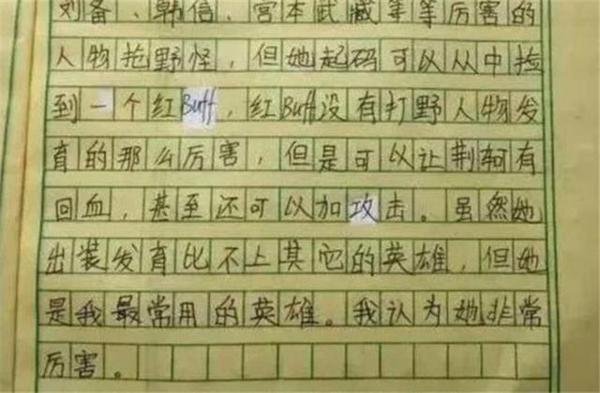 刘备、韩信、宫本武藏等等厉害的
人物抢野怪，但她起码可以从中抢
到一个红Buff，红Buff没有打野人物发
育的那么厉害，但是可以让荆轲有
回血，甚至还可以加攻击。虽然她
出装发育比不上其它的英雄，但她
是我最常用的英雄。我认为她非常
厉害。